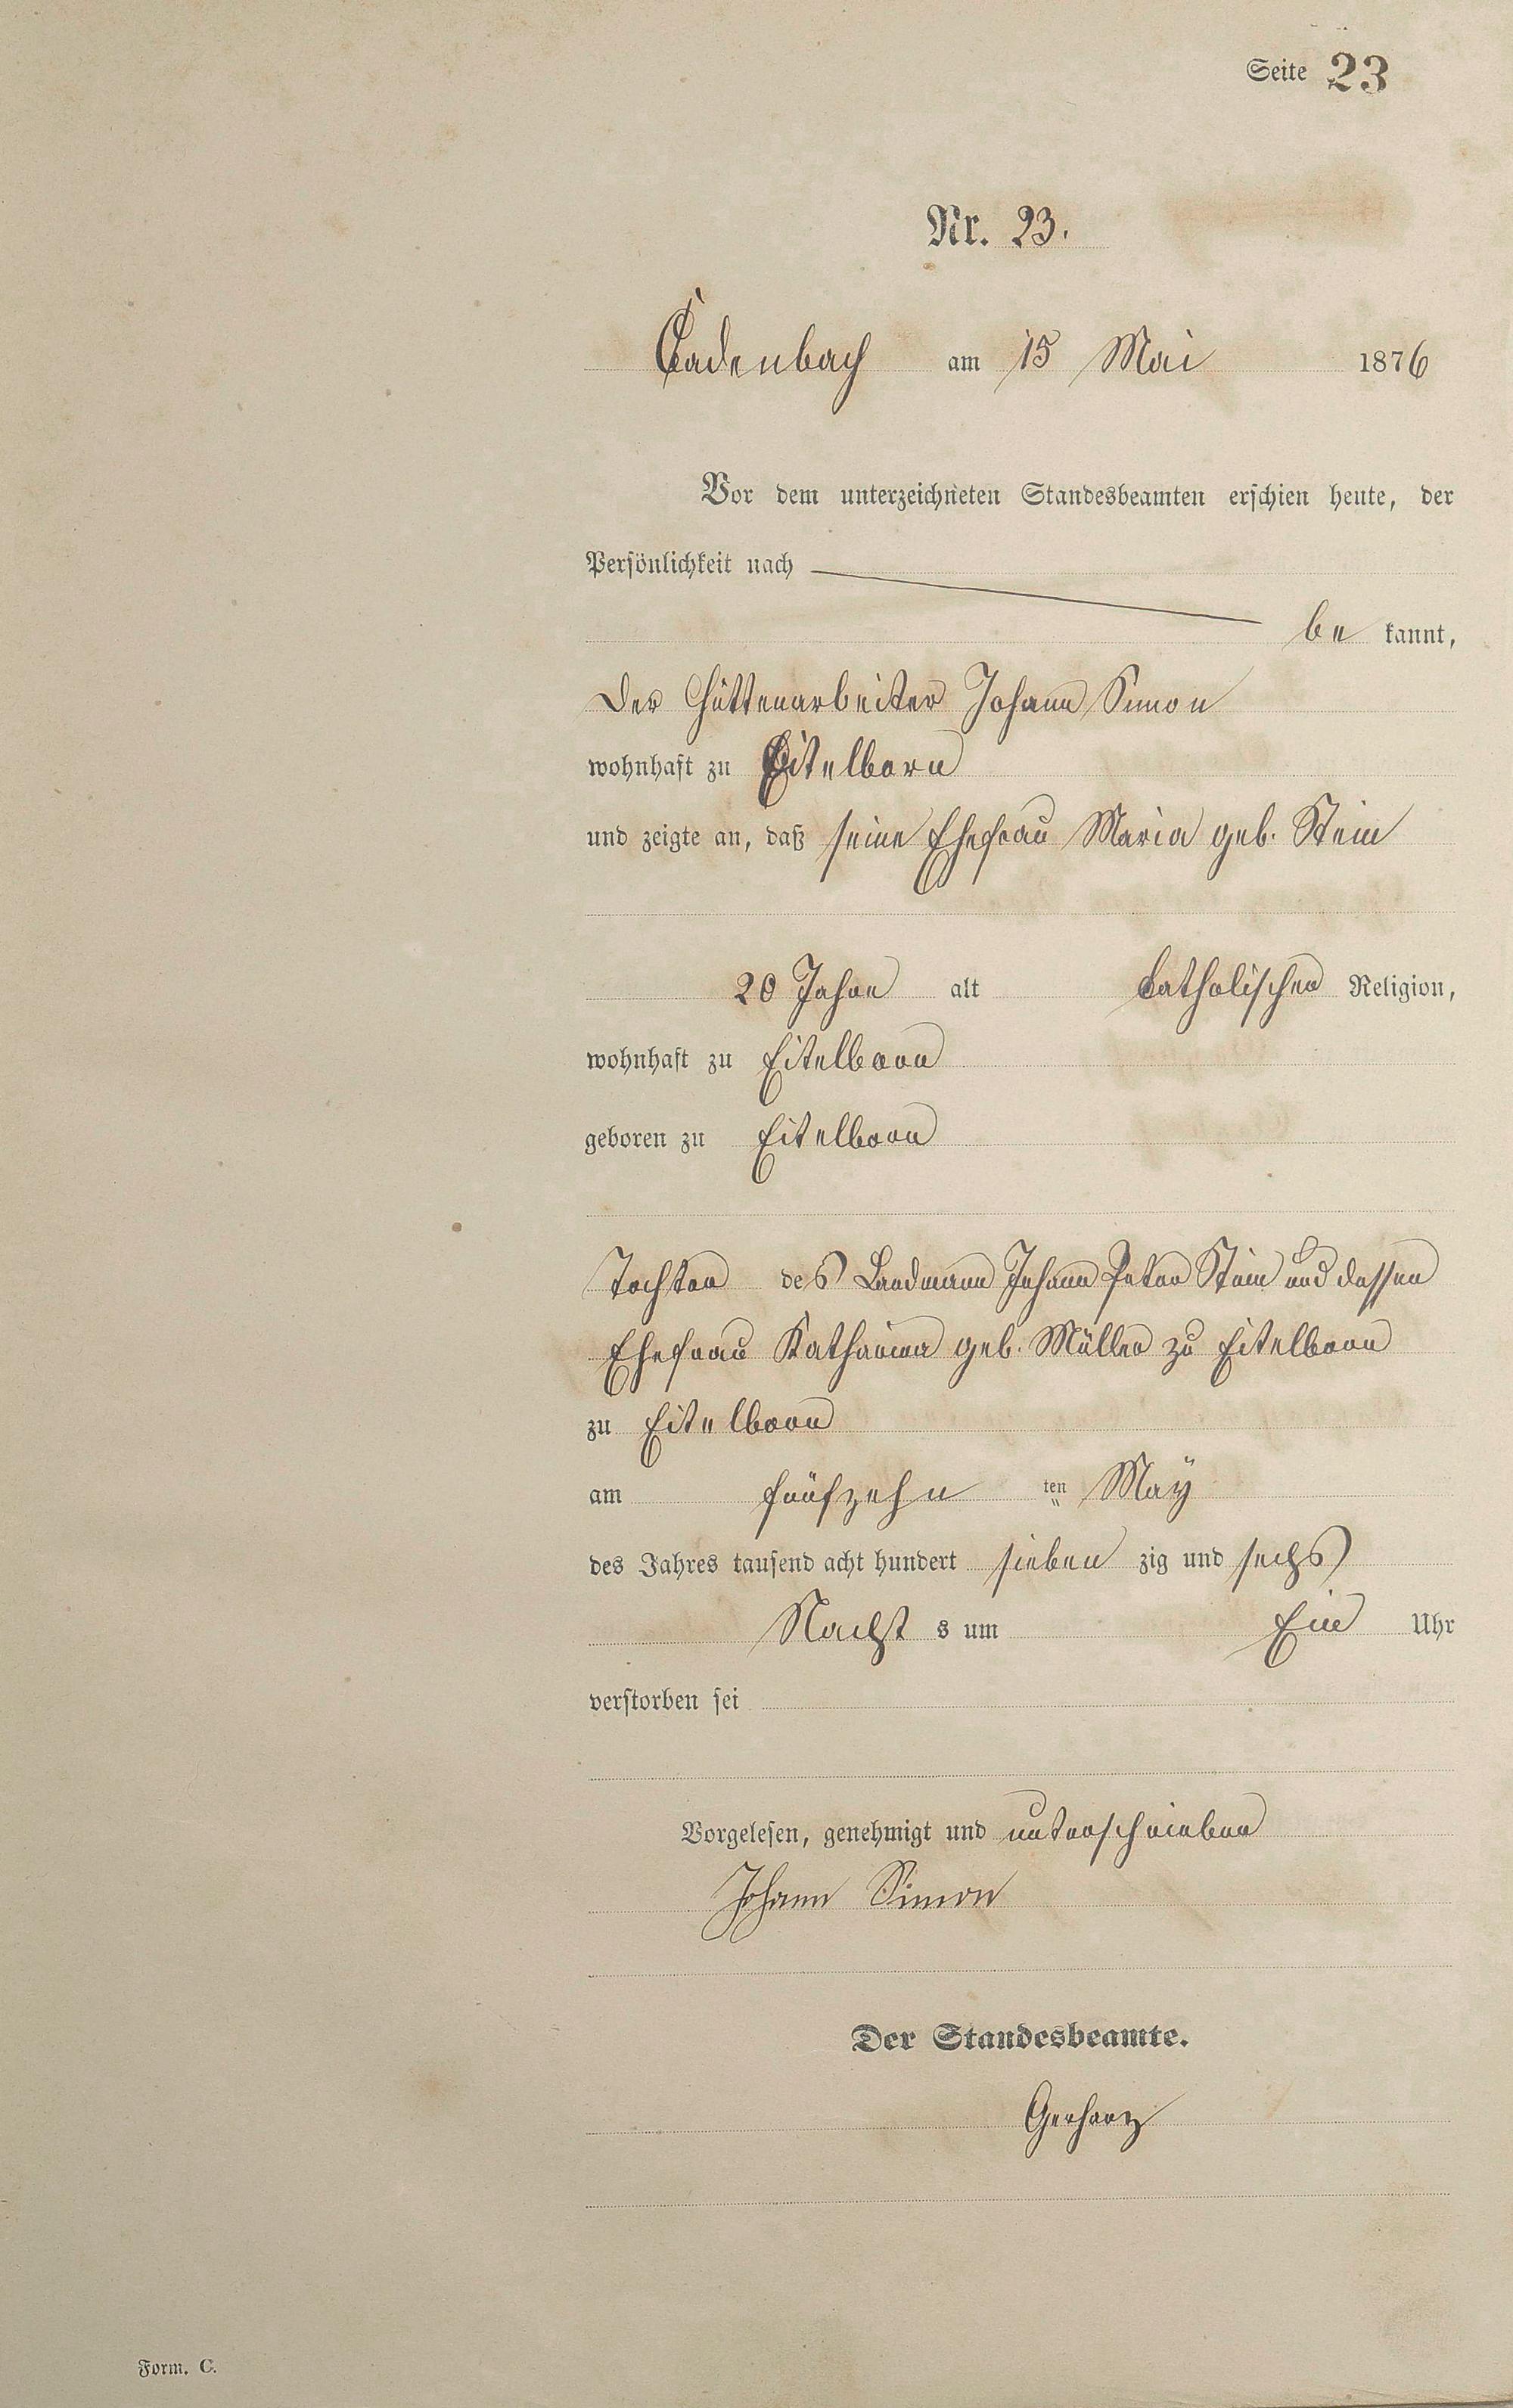 Seite 23
Nr. 23.
Cadenbach am 15 Mai 1876
Vor dem unterzeichneten Standesbeamten erschien heute, der
Persönlichkeit nach
be kannt,
der Hüttenarbeiter Johann Simon
wohnhaft zu Eitelborn
und zeigte an, daß seine Ehefrau Maria geb. Stein
20 Jahre alt katholischer Religion,
wohnhaft zu Eitelborn
geboren zu Eitelborn
Tochter des Landmann Johann Peter Stein und dessen
Ehefrau Katharina geb. Müller zu Eitelborn
zu Eitelborn
am fünfzehn ten May
des Jahres tausend acht hundert sieben zig und sechs
Nacht s um Ein Uhr
verstorben sei
Vorgelesen, genehmigt und unterschrieben
Johann Simon
Der Standesbeamte.
Gerharz
Form. C.